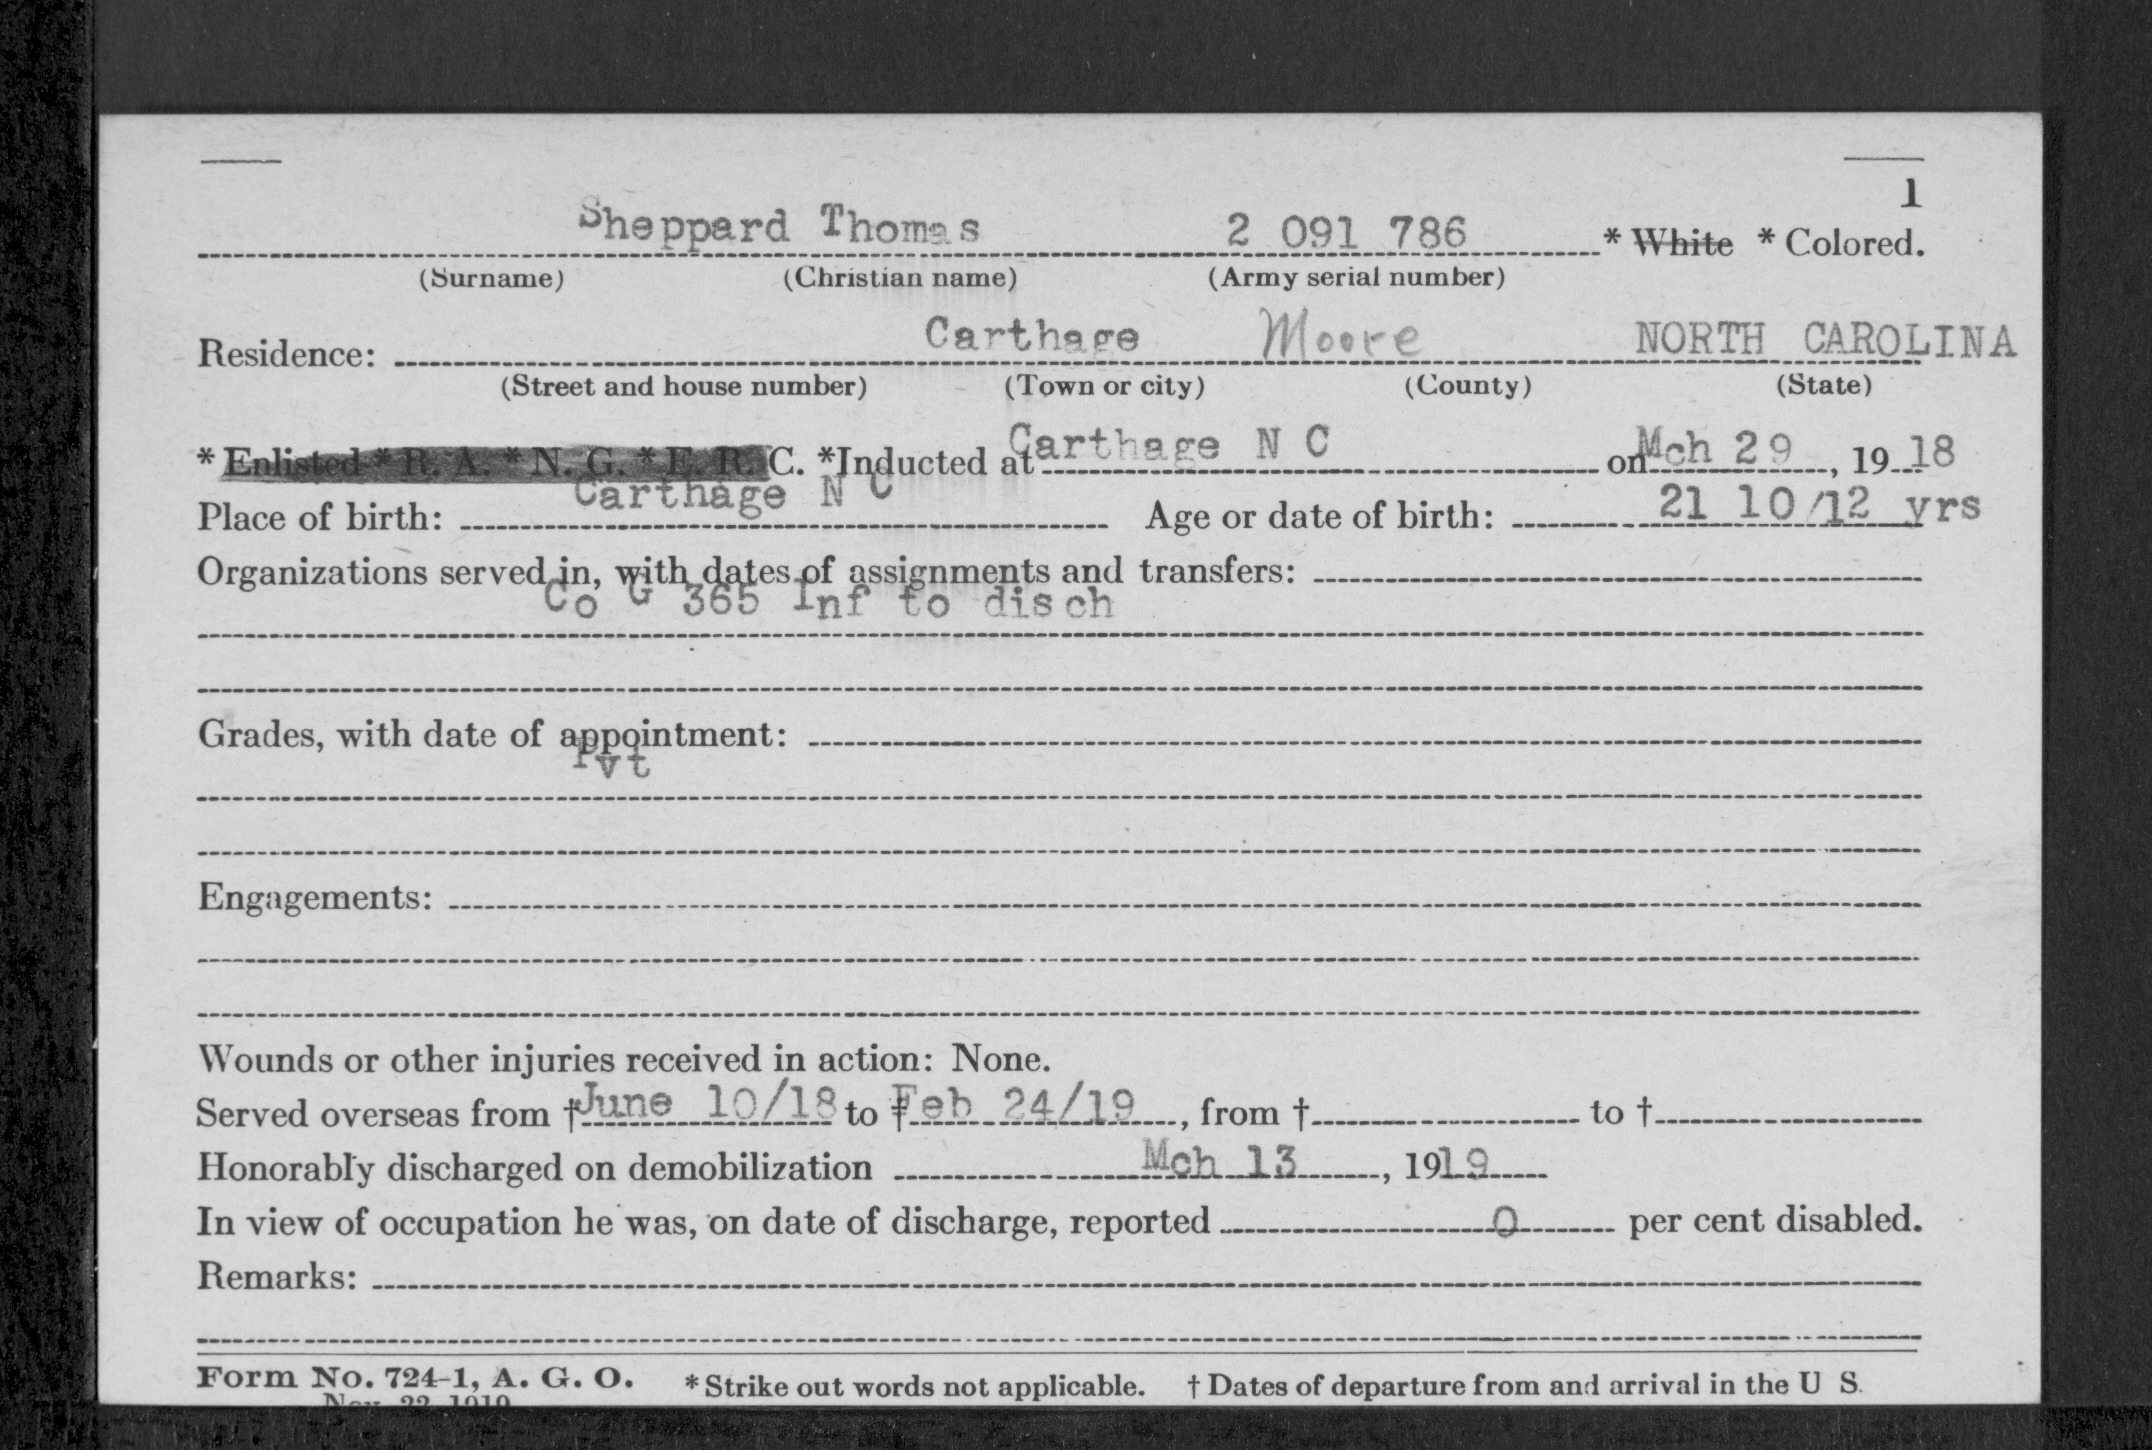 1
Sheppard Thomas 2 091 786 * White * Colored.
(Surname) (Christian name) (Army serial number)
Residence: Carthage Moore NORTH CAROLINA
(Street and house number) (Town or city) (County) (State)
* Enlisted * R. A. * N. G. * E. R. C. *Inducted at Carthage N C on Mch 29, 1918
Place of birth: Carthage N C Age or date of birth: 21 10/12 yrs
Organizations served in, with dates of assignments and transfers:
Co G 365 Inf to disch
Grades, with date of appointment:
Pvt
Engagements:
Wounds or other injuries received in action: None.
Served overseas from † June 10/18 to † Feb 24/19, from † to †
Honorably discharged on demobilization Mch 13, 1919
In view of occupation he was, on date of discharge, reported 0 per cent disabled.
Remarks:
Form No. 724-1, A. G. O. * Strike out words not applicable. † Dates of departure from and arrival in the U S.
Nov. 22, 1919